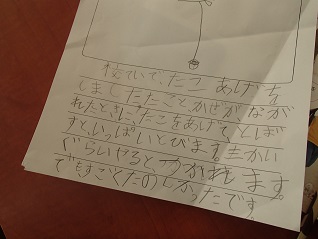 校ていで、たこあげを
しました。たこと、かぜがなが
れたときに、たこをあげて、とば
すと、いっぱいとびます。三かい
ぐらいやると、つかれます。
でもすごくたのしかったです。